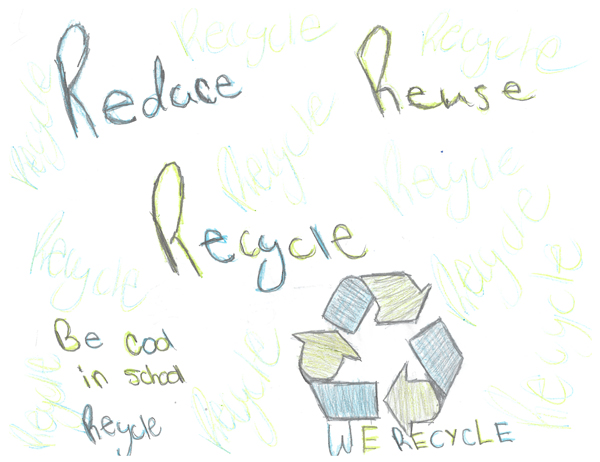 Recycle
Recycle
Reduce
Reuse
Recycle
Recycle
Recycle
Recycle
Recycle
Recycle
Recycle
Be cool
in school
Recycle
Recycle
Recycle
WE RECYCLE